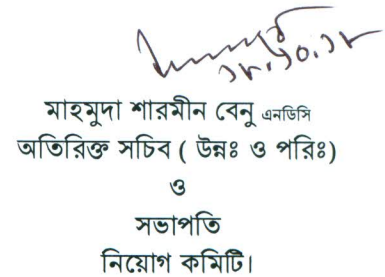 ১৮.১০.১৮
মাহমুদা শারমীন বেনু এনডিসি
অতিরিক্ত সচিব ( উন্নঃ ও পরিঃ)
ও
সভাপতি
নিয়োগ কমিটি।